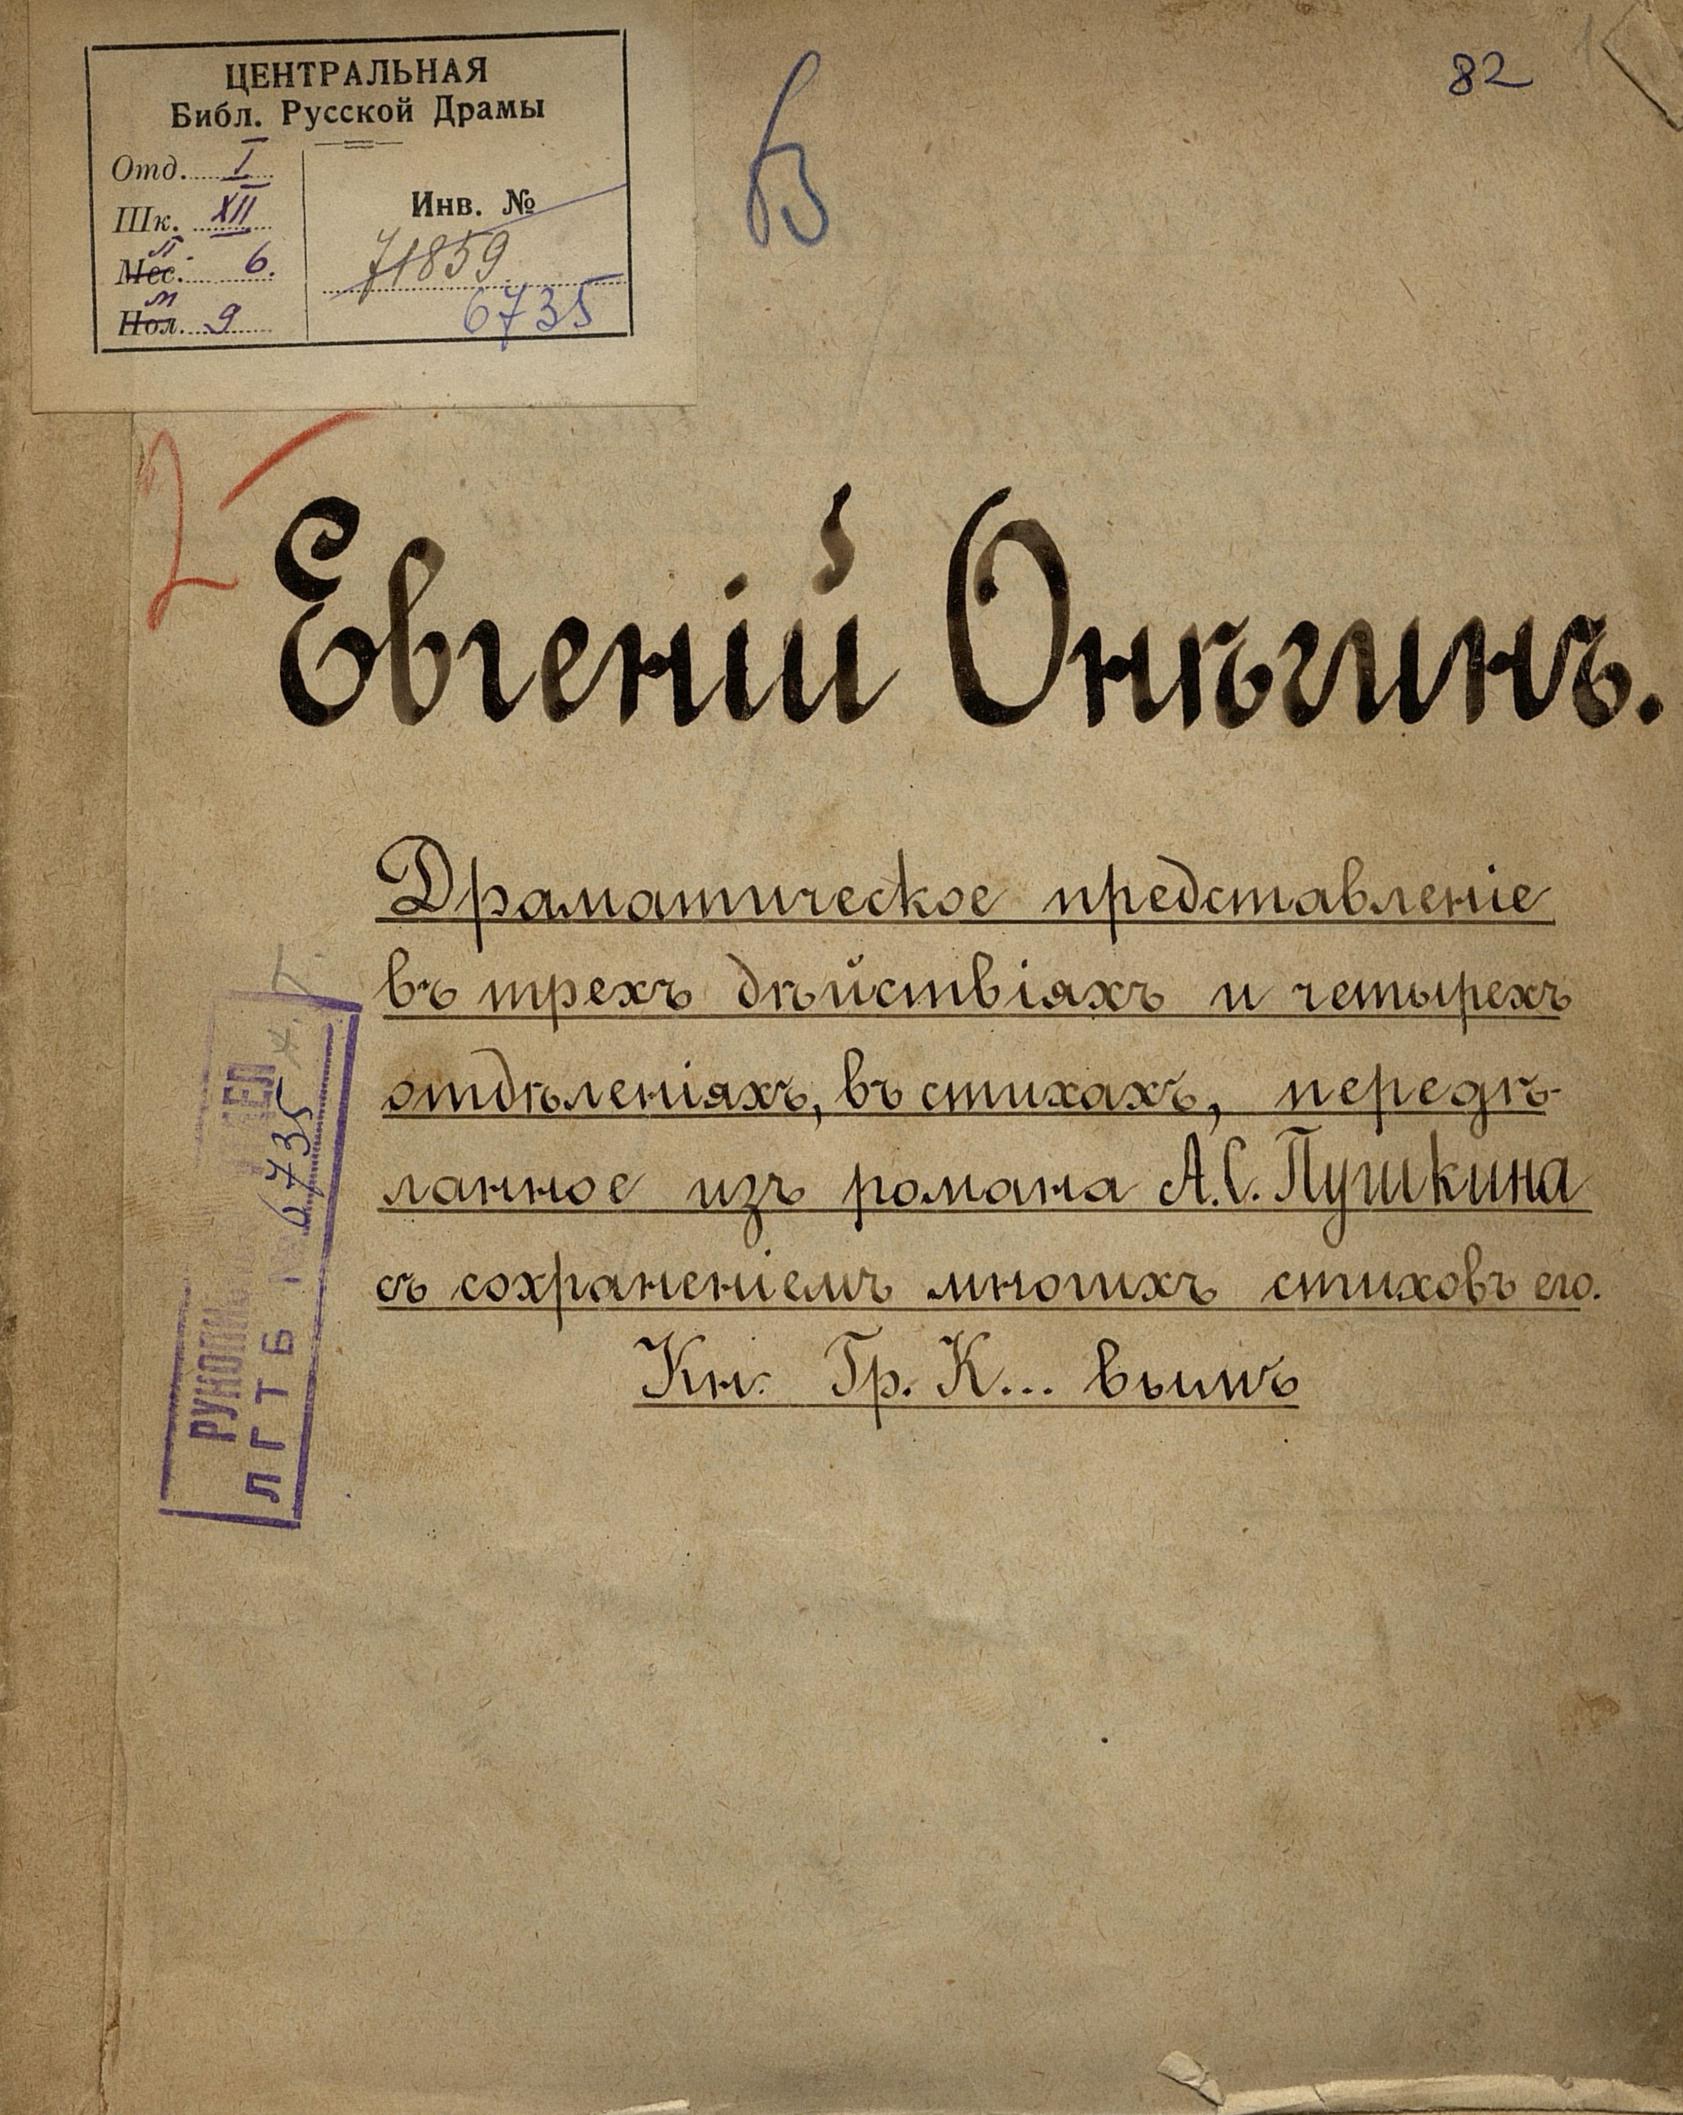 ЦЕНТРАЛЬНАЯ
Библ. Русской Драмы
Отд. I
Шк. XII
Мес. П. 6.
Пол. м 9
Инв. №
71859
6735
В
82
2
Евгеній Онѣгинъ.
Драматическое представленіе
въ трехъ дѣйствіяхъ и четырехъ
отдѣленіяхъ, въ стихахъ, передѣ-
ланное изъ романа А.С. Пушкина
съ сохраненіемъ многихъ стиховъ его.
Кн. Гр. К... вымъ
ЛГТБ № 6735